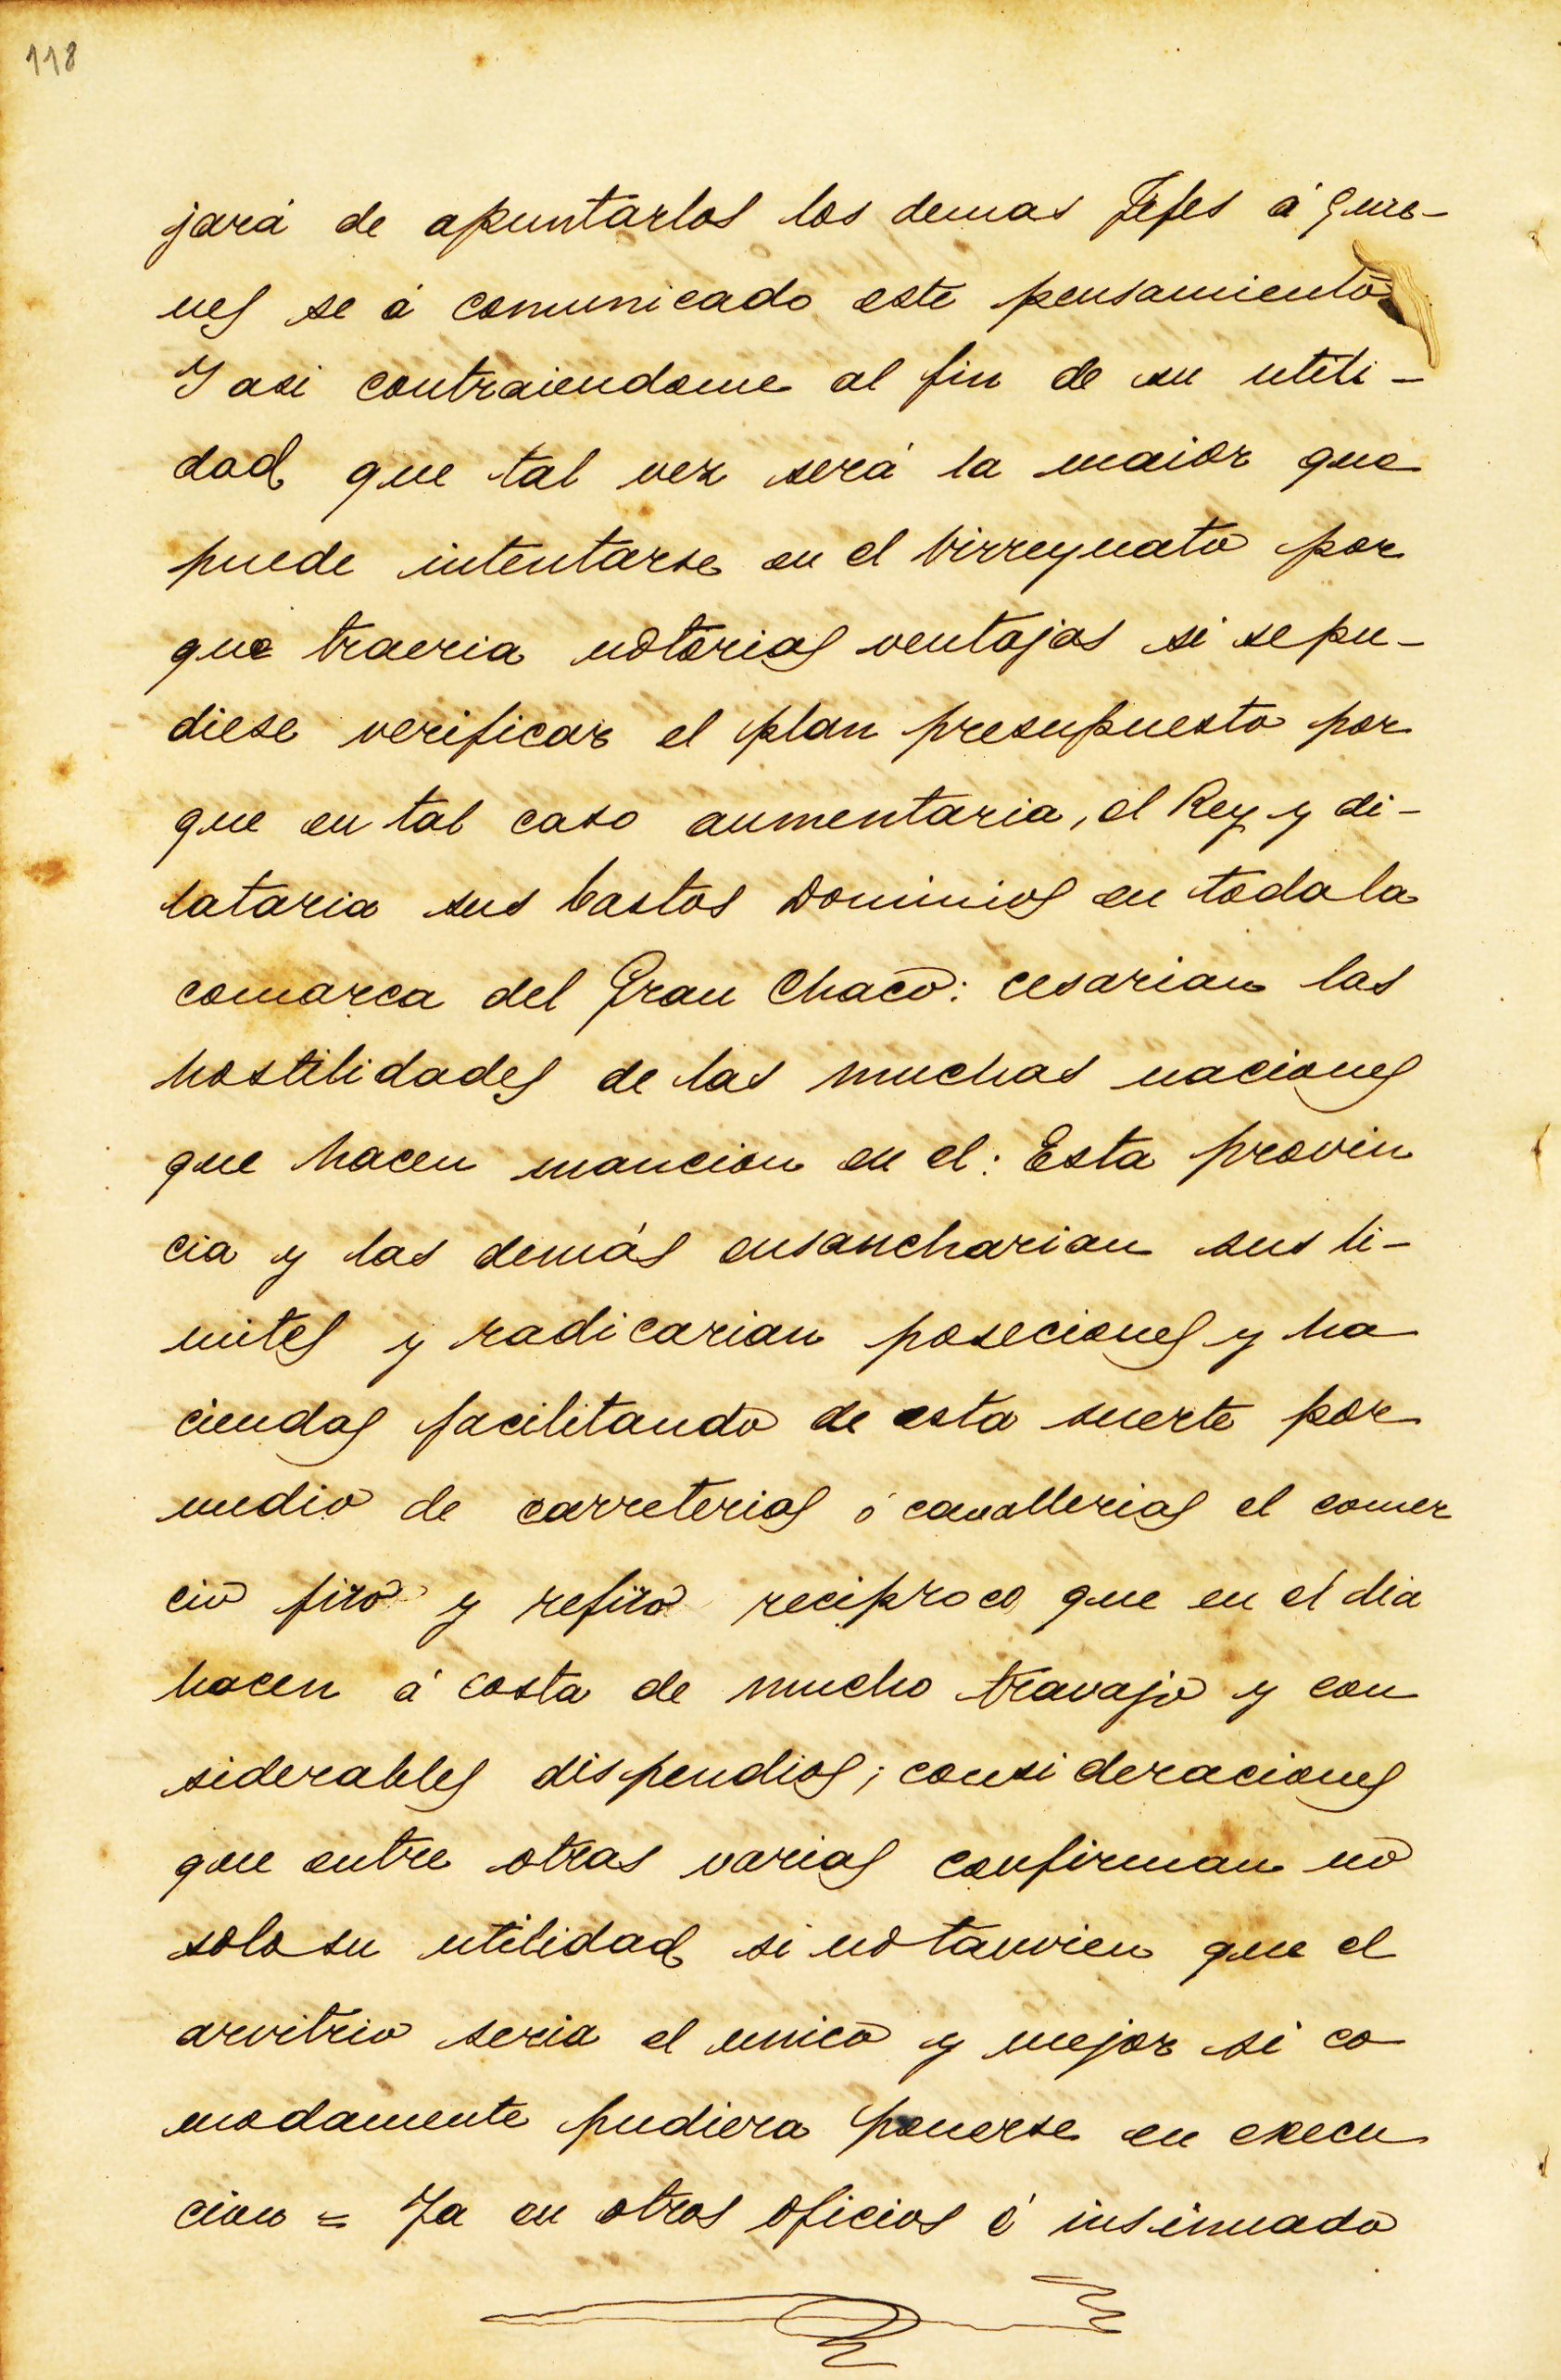 118
jará de apuntarlos los demas Jefes á quie-
nes se á comunicado este pensamiento
Y asi contraiendome al fin de su utili-
dad que tal vez será la maior que
puede intentarse en el Virreynato por
que traeria notorias ventajas si se pu-
diese verificar el plan presupuesto por
que en tal caso aumentaria, el Rey y di-
lataria sus bastos Dominios en toda la
comarca del Gran Chaco: cesarian las
hostilidades de las muchas naciones
que hacen mancion en el: Esta provin
cia y las demás ensancharian sus li-
mites y radicarian poseciones y ha
ciendas facilitando de esta suerte por
medio de carreterias ó cavallerias el comer
cio firo y refiro reciproco que en el dia
hacen á costa de mucho travajo y con
siderables dispendios; consideraciones
que entre otras varias confirman no
solo su utilidad si no tanvien que el
arvitrio seria el unico y mejor si co
modamente pudiera ponerse en execu
cion = Ya en otros oficios é insinuado